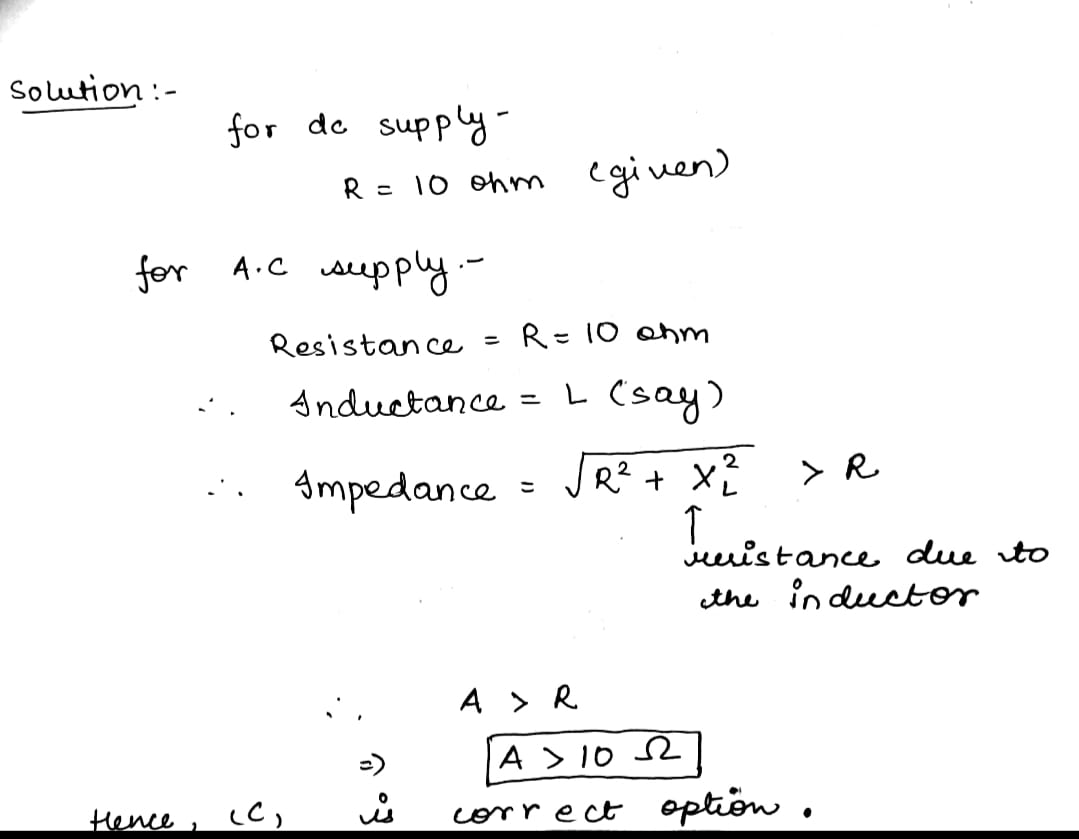 Solution :-
for dc supply -
R = 10 ohm (given)
for A.C supply :-
Resistance = R = 10 ohm
∴ Inductance = L (say)
∴ Impedance = √(R² + X_L²) > R
↑
resistance due to
the inductor
∴ A > R
⇒ A > 10 Ω
Hence, (C) is correct option .